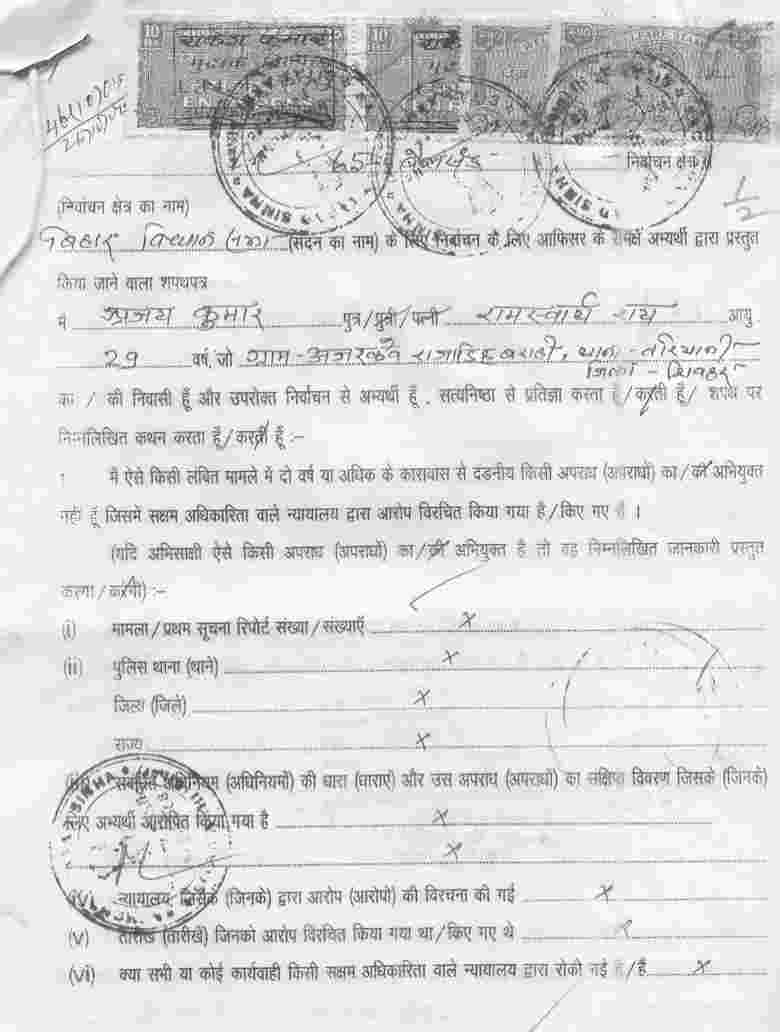 निर्वाचन क्षेत्र
(निर्वाचन क्षेत्र का नाम)
बिहार विधान सभा (सदन का नाम) के लिए निर्वाचन के लिए आफिसर के समक्ष अभ्यर्थी द्वारा प्रस्तुत
किया जाने वाला शपथपत्र
मैं अजय कुमार पुत्र/पुत्री/पत्नी रामस्वार्थ राय आयु
29 वर्ष, जो ग्राम- राजाडिह बराही, थाना-तरियानी
जिला - शिवहर
का / की निवासी हूँ और उपरोक्त निर्वाचन से अभ्यर्थी हूँ , सत्यनिष्ठा से प्रतिज्ञा करता हूँ/करती हूँ/ शपथ पर
निम्नलिखित कथन करता हूँ/करती हूँ :-
मैं ऐसे किसी लंबित मामले में दो वर्ष या अधिक के कारावास से दंडनीय किसी अपराध (अपराधों) का/की अभियुक्त
नहीं हूँ जिसमें सक्षम अधिकारिता वाले न्यायालय द्वारा आरोप विरचित किया गया है/किए गए हैं ।
(यदि अभिसाक्षी ऐसे किसी अपराध (अपराधों) का/की अभियुक्त है तो वह निम्नलिखित जानकारी प्रस्तुत
करेगा/करेगी) :-
(i) मामला/प्रथम सूचना रिपोर्ट संख्या/संख्याएँ x
(ii) पुलिस थाना (थाने) x
जिला (जिले) x
राज्य x
संबंधित अधिनियम (अधिनियमों) की धारा (धाराएं) और उस अपराध (अपराधों) का संक्षिप्त विवरण जिसके (जिनके)
लिए अभ्यर्थी आरोपित किया गया है x
x
न्यायालय जिसके (जिनके) द्वारा आरोप (आरोपों) की विरचना की गई x
(v) तारीख (तारीखें) जिनको आरोप विरचित किया गया था/किए गए थे x
(vi) क्या सभी या कोई कार्यवाही किसी सक्षम अधिकारिता वाले न्यायालय द्वारा रोकी गई है/हैं x